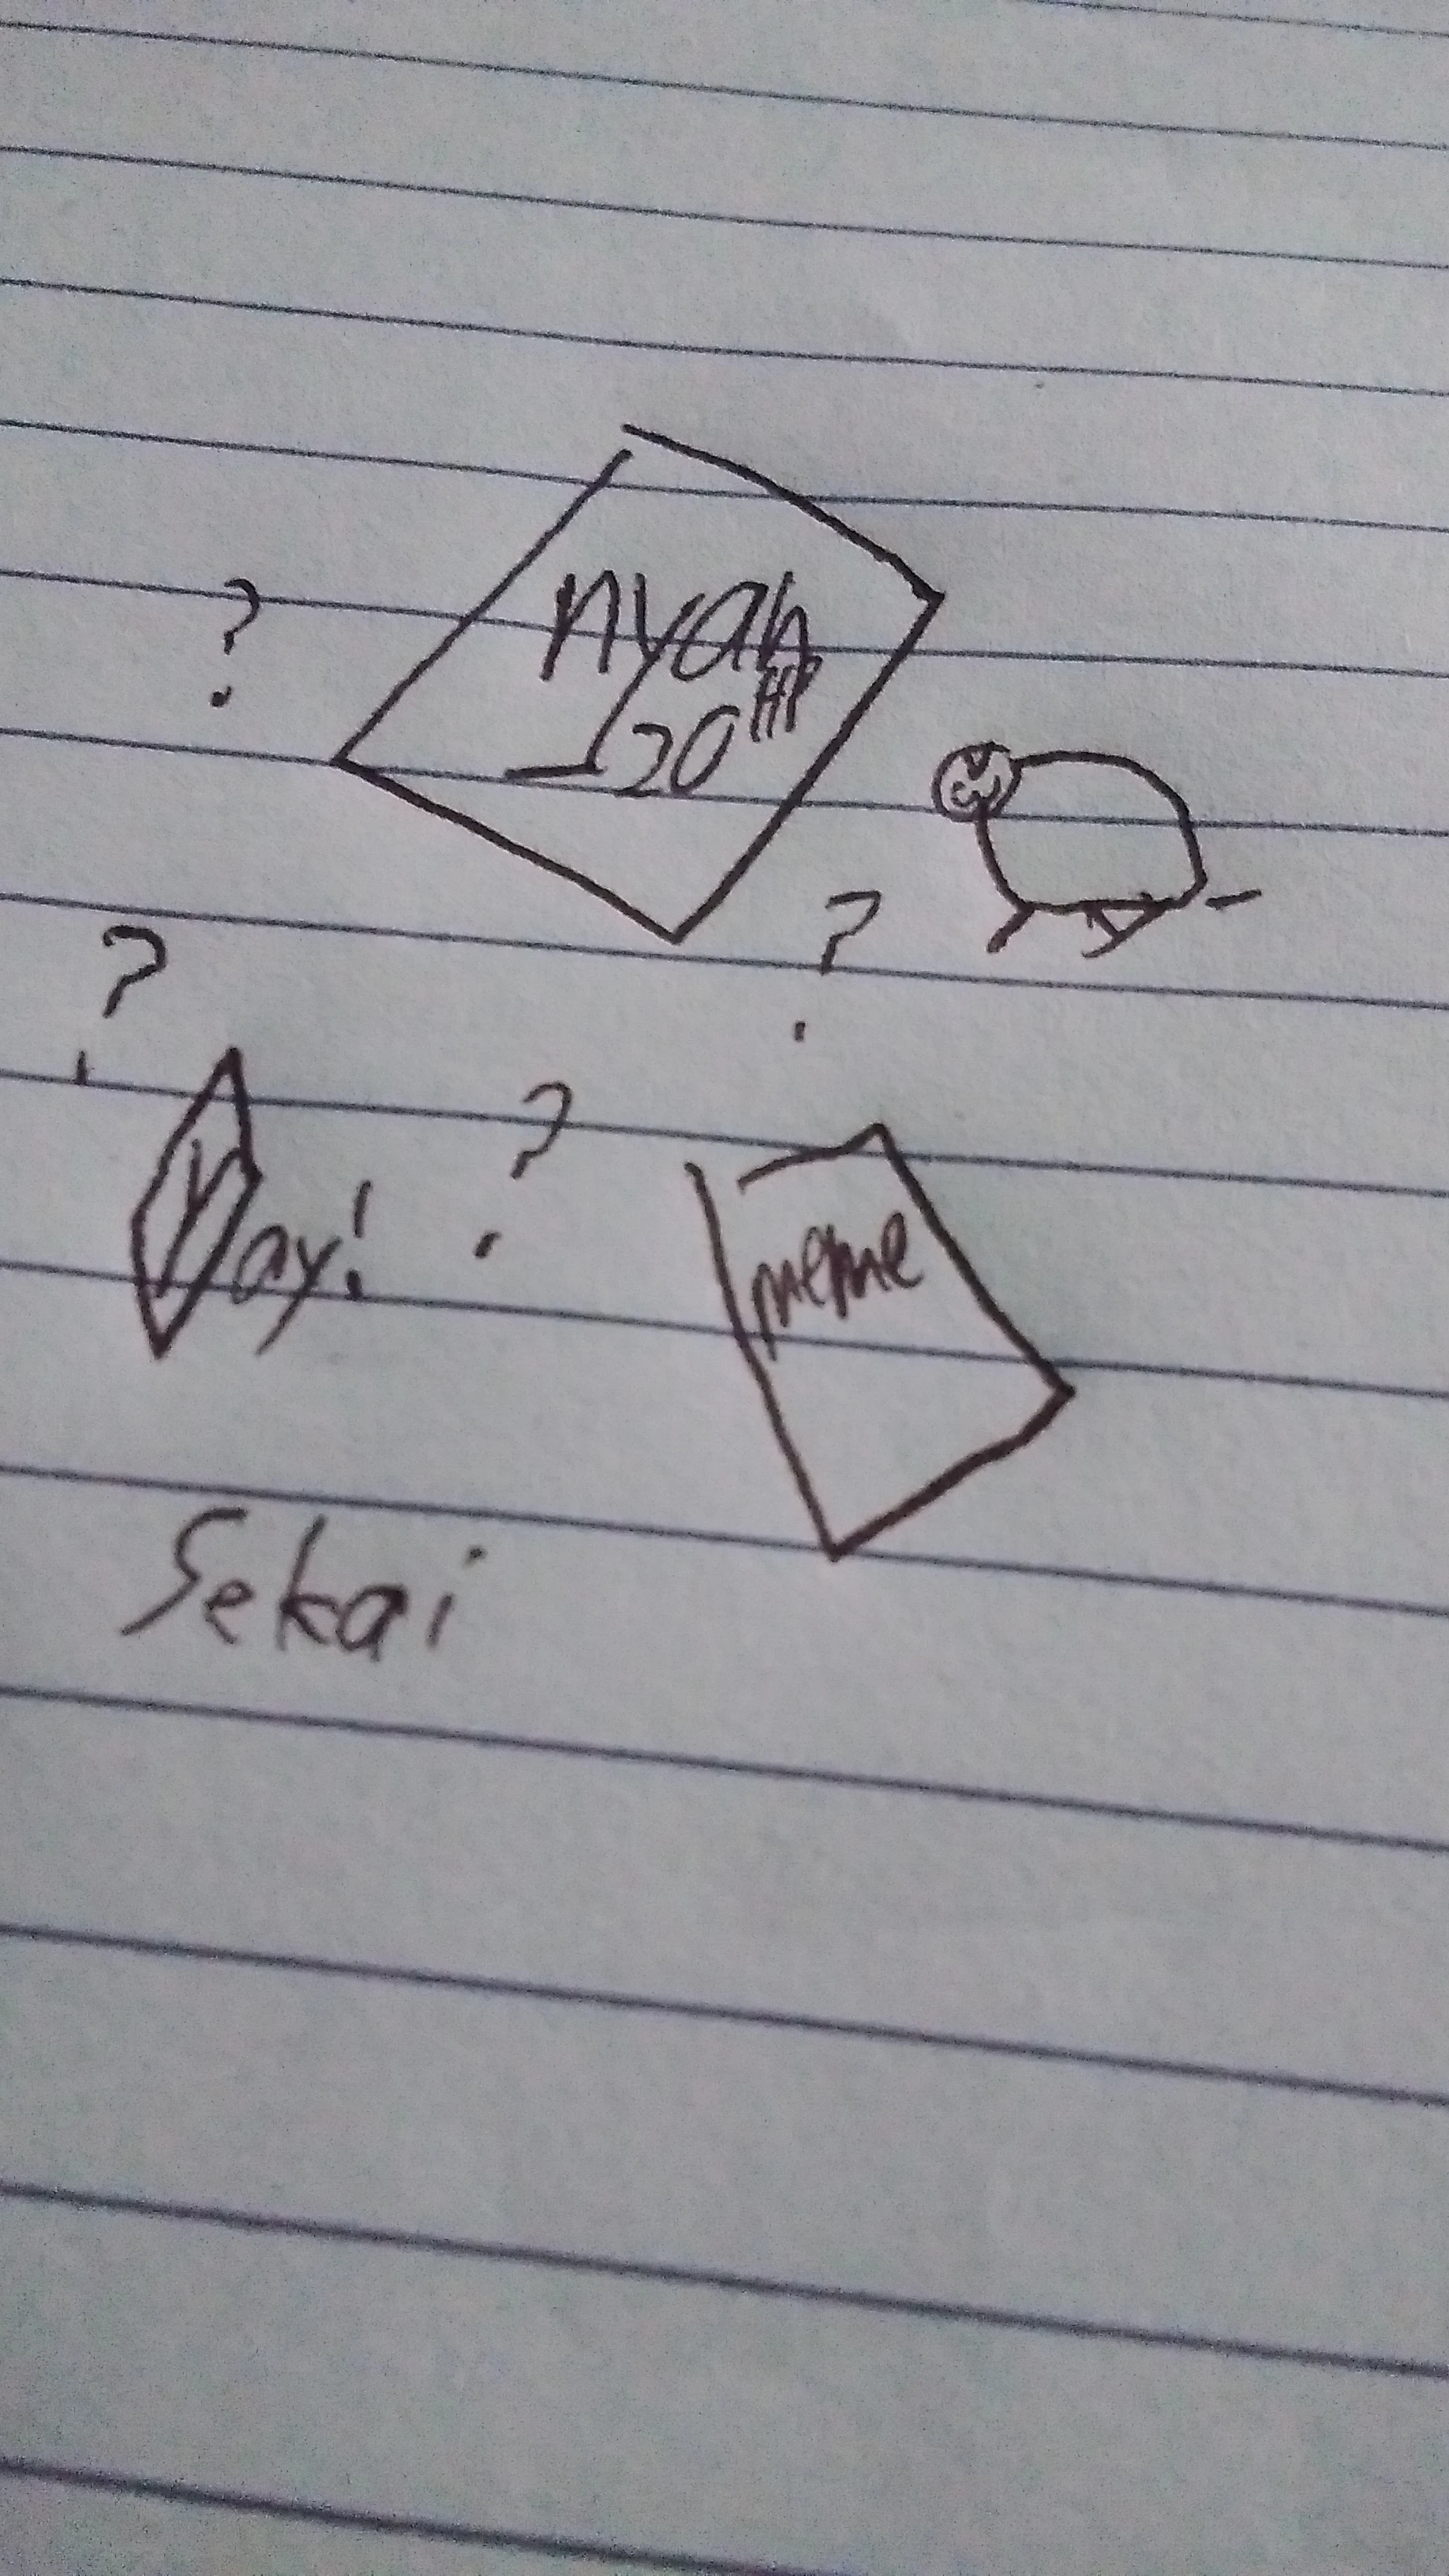 ?
nyah
20HP
?
?
?
Yay!
meme
Sekai